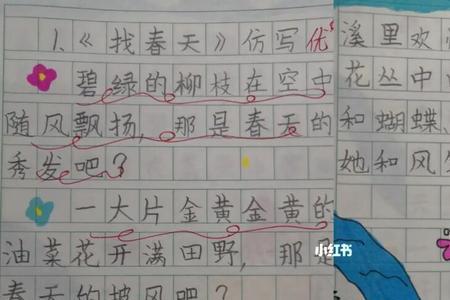 1.《找春天》仿写 优
碧绿的柳枝在空中
随风飘扬，那是春天的
秀发吧？
一大片金黄金黄的
油菜花开满田野，那是
春天的披风吧？
溪里欢
花丛中
和蝴蝶、
她和风
小红书